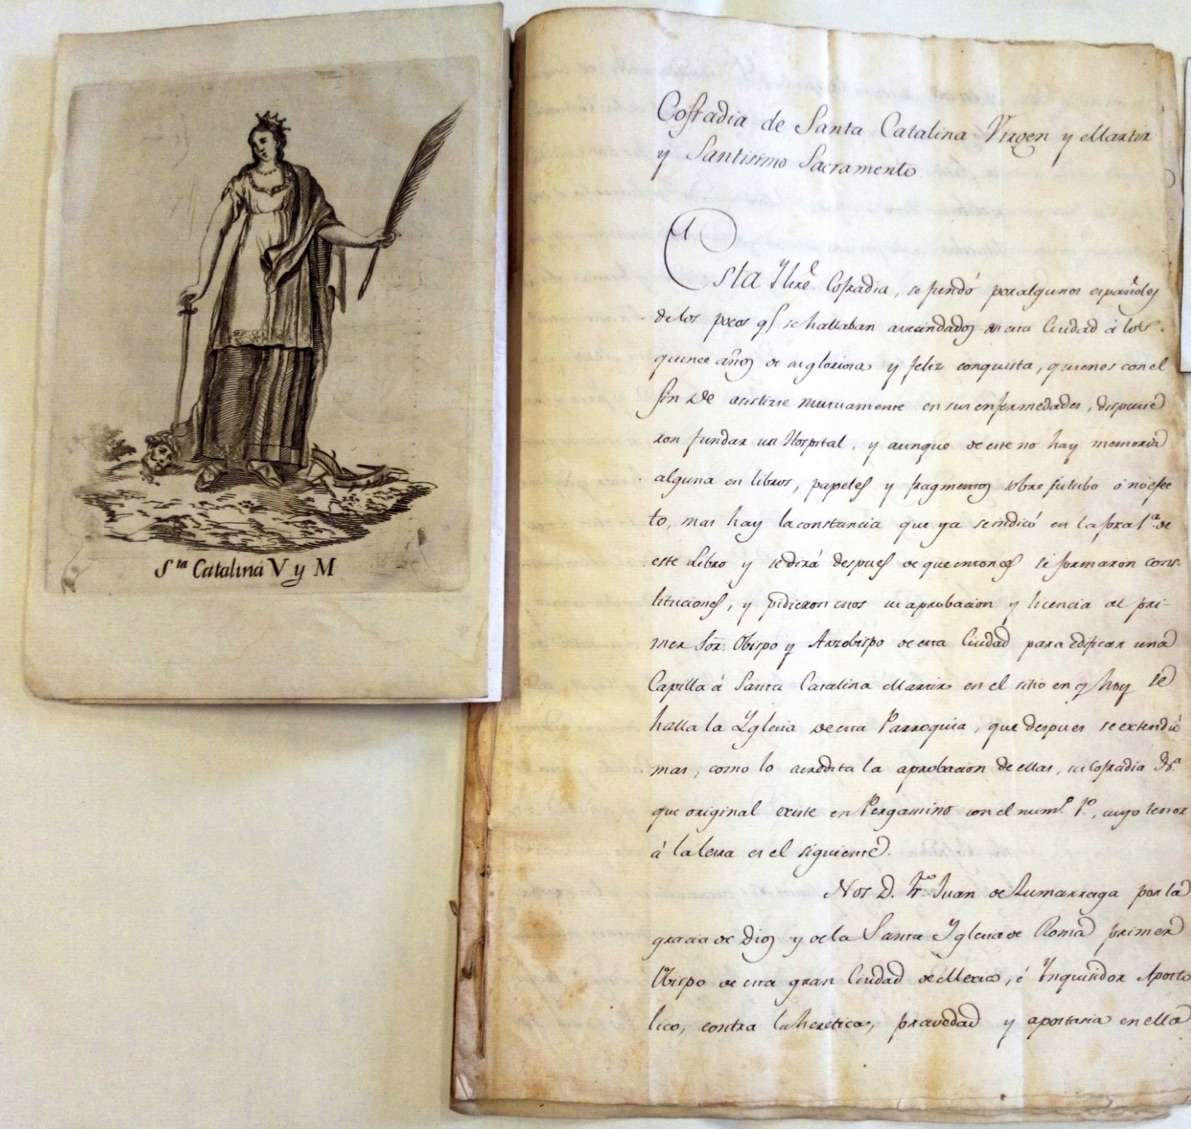 Sta Catalina V y M
Cofradia de Santa Catalina Virgen y Martir
y Santisimo Sacramento
Esta Yltre Cofradia, se fundó por algunos españoles
de los pocos q se hallaban avecindados en esta Ciudad á los
quince años de su gloriosa y feliz conquista, quienes con el
fin de asistirse mutuamente en sus enfermedades, dispusie
ron fundar un Hospital, y aunque de este no hay memoria
alguna en libros, papeles y fragmentos sobre si tubo ó nó efec
to, mas hay la constancia que ya se indicó en la foxa 1ª de
este Libro y se dirá despues de que entonces se formaron cons
tituciones, y pidieron su aprobacion y licencia al pri-
mer Sor. Obispo y Arzobispo de esta Ciudad para edificar una
Capilla á Santa Catalina Martir en el sitio en q hoy se
halla la Yglesia de esta Parroquia, que despues se extendió
mas, como lo acredita la aprobacion de ellas, su Cofradia
que original existe en Pergamino con el numº 1º, cuyo tenor
á la letra es el siguiente.
Nos D. Fr. Juan de Zumarraga por la
gracia de Dios y de la Santa Yglesia de Roma primer
Obispo de esta gran Ciudad de Mexico, é Ynquisidor Aposto
lico, contra la heretica, pravedad y apostasia en ella